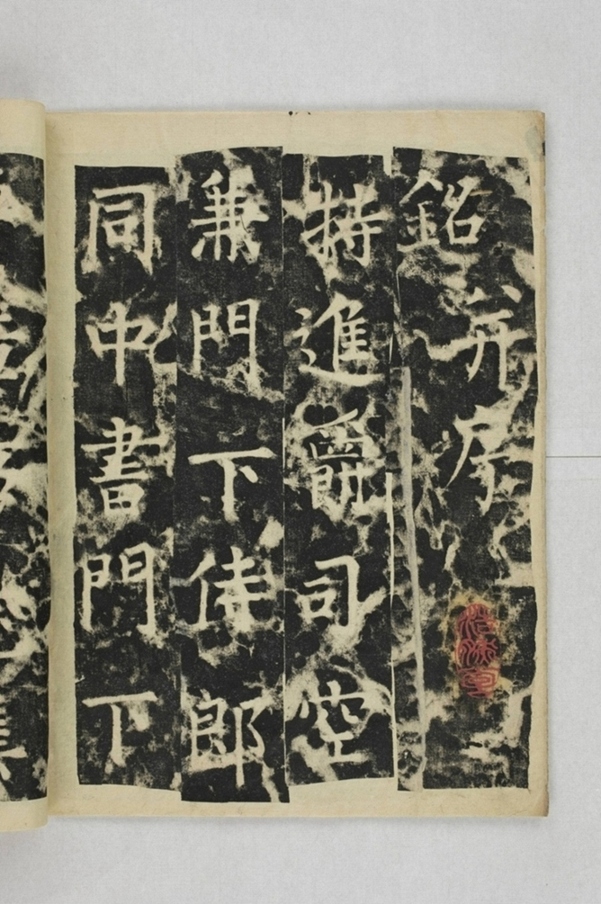 銘并序
特進爵司空
兼門下侍郎
同中書門下